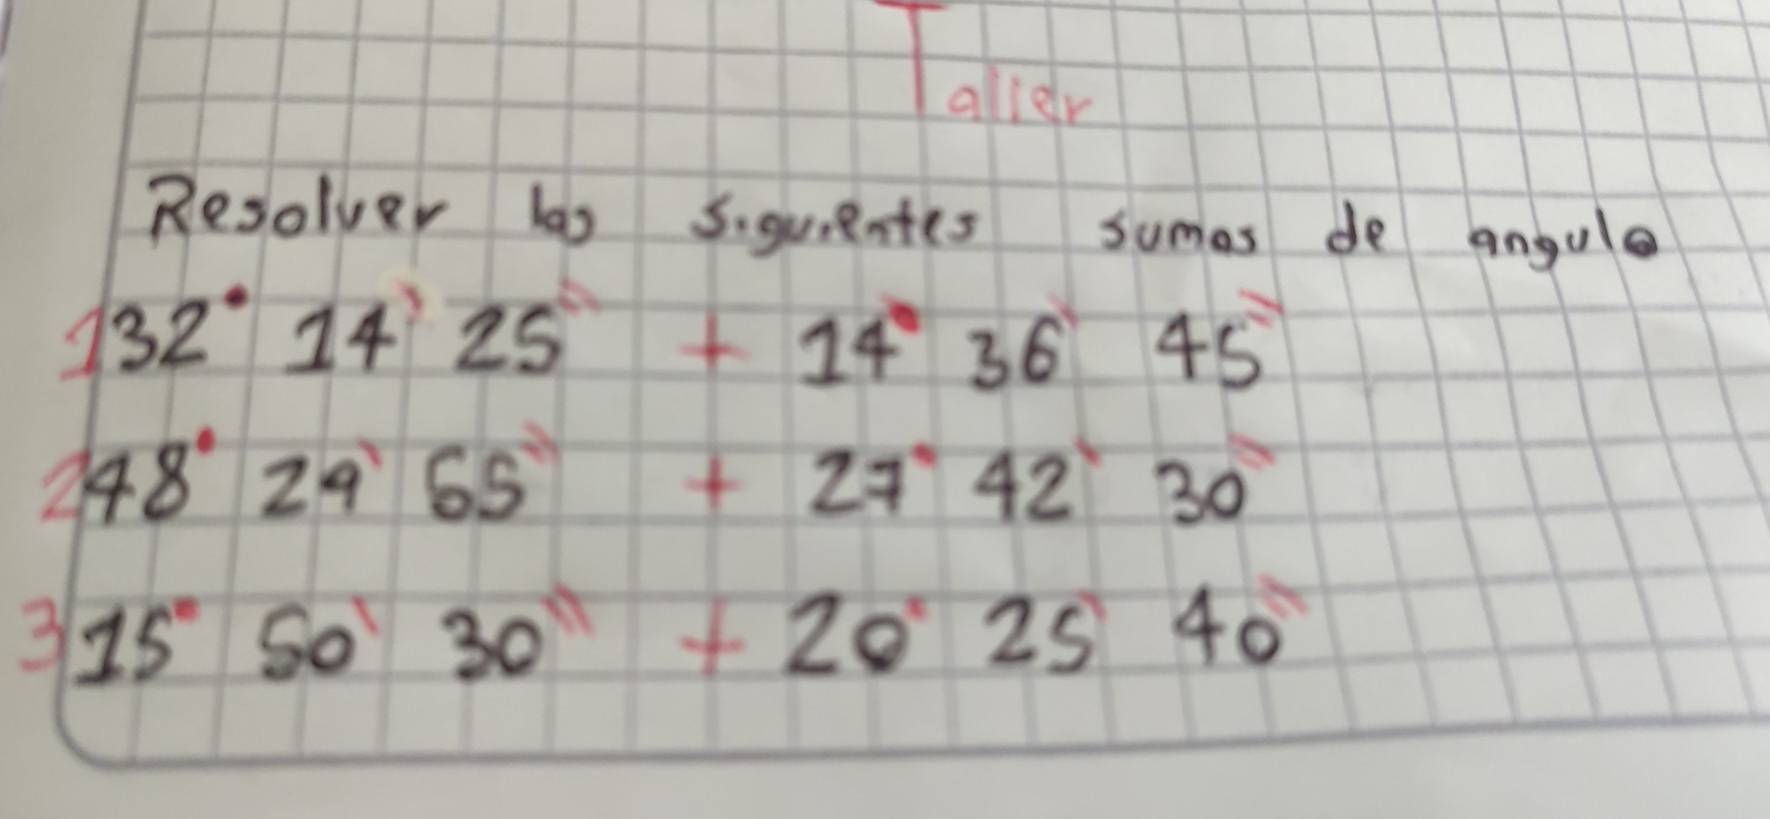 Taller
Resolver las siguientes sumas de angulo
1 32° 14' 25" + 14° 36' 45"
2 48° 29' 55" + 27° 42' 30"
3 15° 50' 30" + 20° 25' 40"